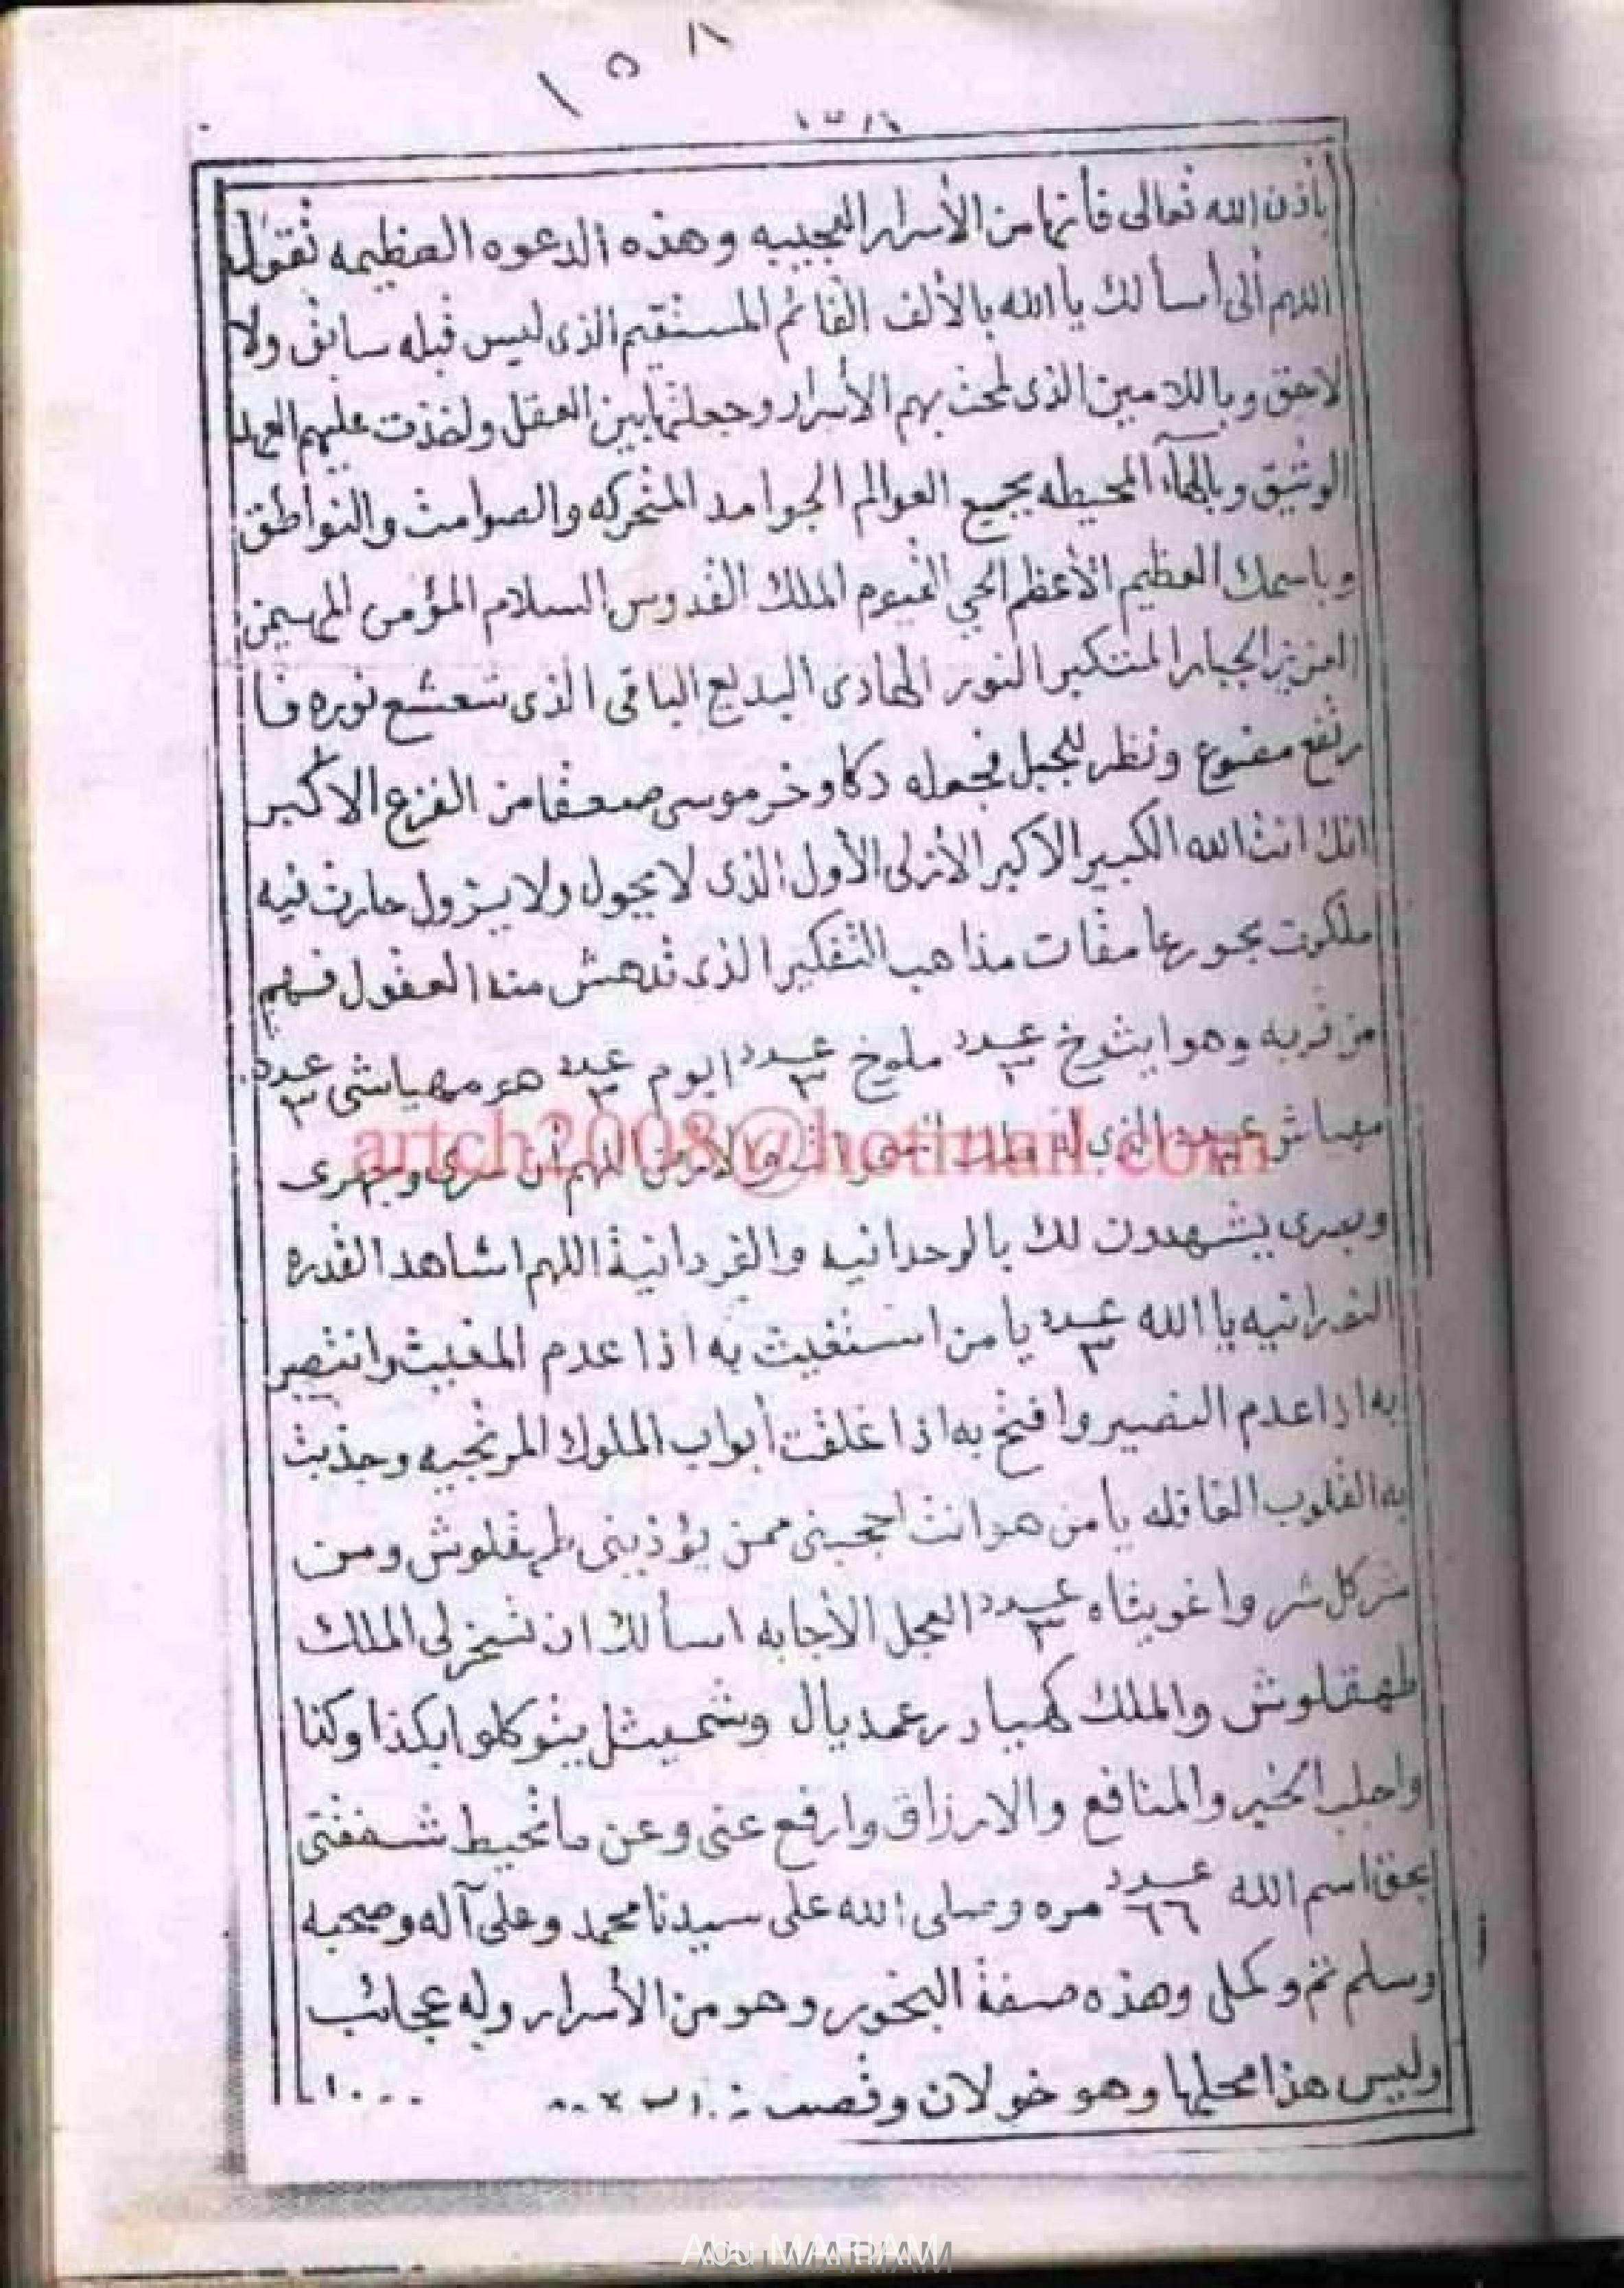 ١٥٨
بأذن الله تعالى فأنها من الأسرار العجيبه وهذه الدعوه العظيمه تقول
اللهم أنى أسألك يا الله بالألف القائم المستقيم الذى ليس قبله سابق ولا
لاحق وباللامين الذى لمحت بهم الأسرار وجعلتها بين العقل واخذت عليهم العهد
الوثيق وبالهآء المحيطه بجميع العوالم الجوامد المتحركه والصوامت والنواطق
وباسمك العظيم الأعظم الحي القيوم الملك القدوس السلام المؤمن المهيمن
العزيز الجبار المتكبر النور الهادى البديع الباقى الذى شعشع نوره فا
رتفع وننظر للجبل فجعله دكا وخر موسى صعقا من الفزع الأكبر
انك انت الله الكبير الأكبر الأزلى الأول الذى لا يحول ولا يزول حارت فيه
ملكوت بحور غامقات مذاهب التفكير الذى تدهش منه العقول فهم
من قربه وهو ايتنوخ عدد ٣ ملوخ عدد ٣ ايوم عدد ٣ هو مهياشى عدد ٣
مهياش عدد ٣ الذى له والأرض اللهم أن سرى وجهرى
وبصرى يشهدون لك بالوحدانيه والفردانية اللهم اشاهد القدرة
النورانيه يا الله عدد ٣ يا من استغيث به اذا عدم المغيث وانتصر
به اذا عدم النصير وافتح به اذا غلقت أبواب الملوك المرتجيه وجذبت
به القلوب الغافله يا من هو انت احجبنى ممن يؤذينى طهقلوش ومن
من كل شر واغويثاه عدد ٣ العجل الأجابه اسألك ان تسخر لى الملك
طهقلوش والملك كهيار رعمديال وشميثل يتوكلوا بكذا وكذا
واجلب الخير والمنافع والارزاق وارفع عنى وعن ما تحيط شفقتى
بحق اسم الله عدد ٦٦ مره وصلى الله على سيدنا محمد وعلى آله وصحبه
وسلم تم وكمل وهذه صفة البخور وهو من الأسرار وله عجائب
وليس هذا محلها وهو خولان وقصب
artch2008@hotmail.com
Abu MARIAM